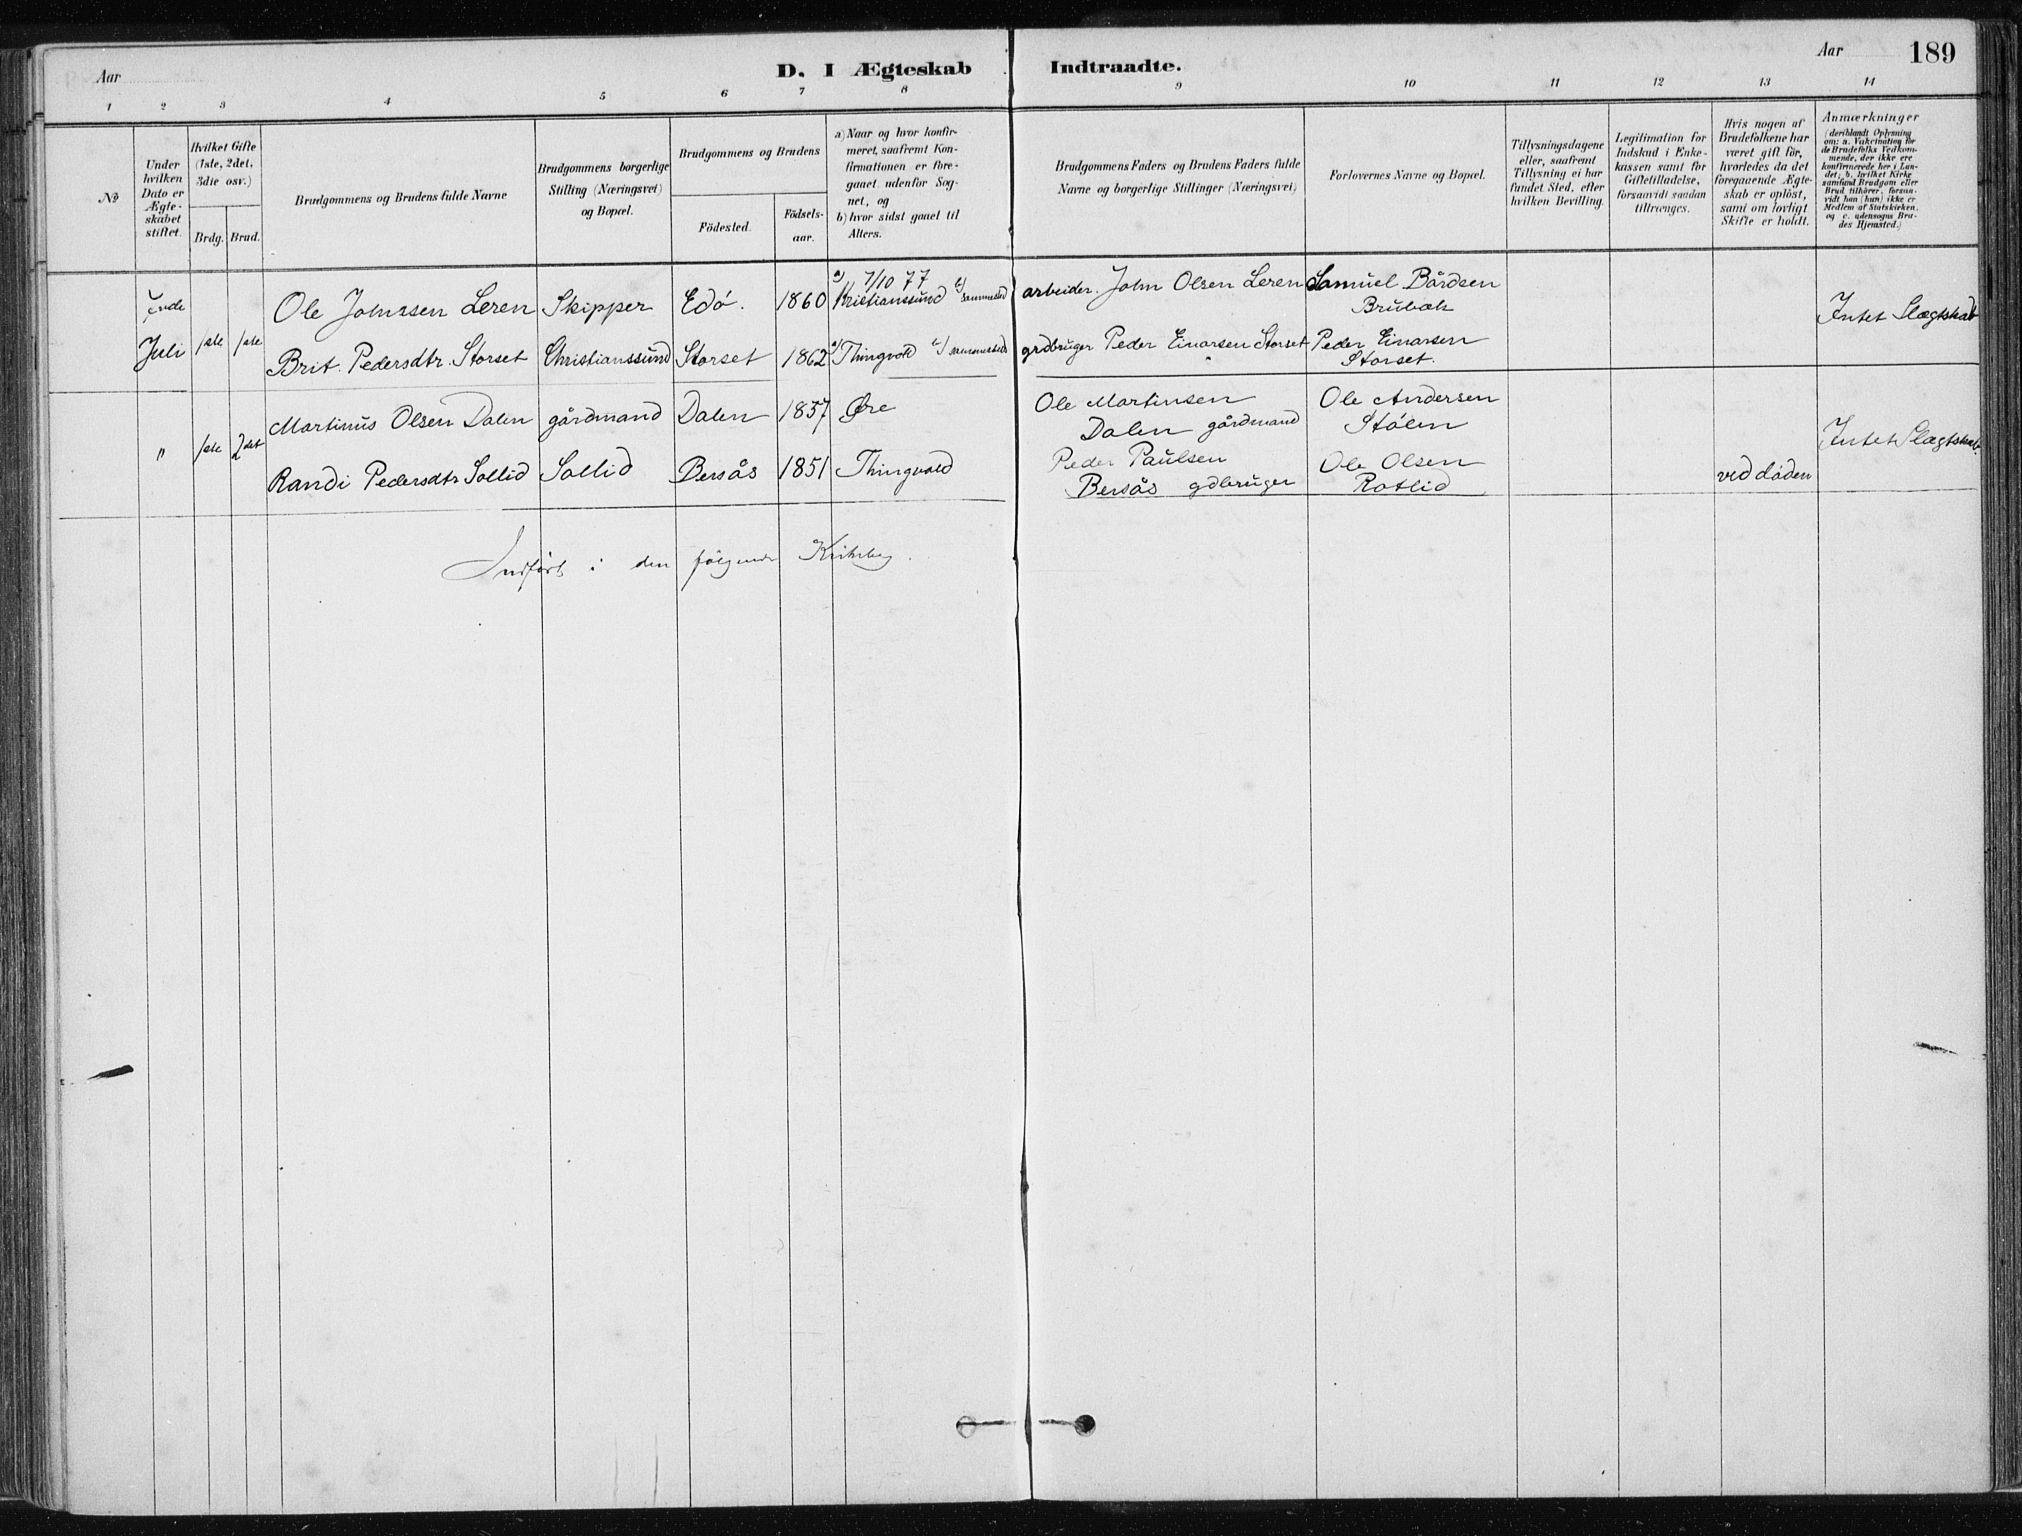 Aar
D. I Ægteskab Indtraadte.
Aar 189
1 2 3 4 5 6 7 8 9 10 11 12 13 14
No
Under
hvilken
Dato er
Ægte-
skabet
stiftet.
Hvilket Gifte
(1ste, 2det,
3die osv.)
Brdg. Brud.
Brudgommens og Brudens fulde Navne
Brudgommens borgerlige
Stilling (Næringsvei)
og Bopæl.
Brudgommens og Brudens
Födested.
Födsels-
aar.
a) Naar og hvor konfir-
meret, saafremt Kon-
firmationen er fore-
gaaet udenfor Sog-
net, og
b) hvor sidst gaaet til
Alters.
Brudgommens Faders og Brudens Faders fulde
Navne og borgerlige Stillinger (Næringsvei)
Forlovernes Navne og Bopæl.
Tillysningsdagene
eller, saafremt
Tillysning ei har
fundet Sted, efter
hvilken Bevilling.
Legitimation for
Indskud i Enke-
kassen samt for
Giftetilladelse,
forsaavidt saadan
tiltrænges.
Hvis nogen af
Brudefolkene har
været gift för,
hvorledes da det
foregaaende Ægte-
skab er oplöst,
samt om lovligt
Skifte er holdt.
Anmærkninger
(deriblandt Oplysning
om: a. Vakcination för
de Brudefolks Vedkom-
mende, der ikke ere
konfirmerede her i Lan-
det; b. hvilket Kirke-
samfund Brudgom eller
Brud tilhörer, forsaa-
vidt han (hun) ikke er
Medlem af Statskirken,
og c. udensogns Bru-
des Hjemsted.)
Ole Johnssen Leren Skipper Edö. 1860 a) 7/10 77 Kristianssund b) sammested arbeider. John Olsen Leren Samuel Bårdsen
Juli 1ste 1ste Intet Slægtskab
Brit. Pedersdtr. Storset Christianssund Storset 1862 a) Thingvold b) sammesteds grdbruger Peder Einarsen Storset Peder Einarsen
Storset.
Martinus Olsen Dalen gårdmand Dalen 1857 Øre Ole Martinsen Ole Andersen
Dalen gårdmand Stölen
" 1ste 2det Intet Slægtskab.
Randi Pedersdtr Sollid Sollid Bersås 1851 Thingvold Peder Paulsen Ole Olsen
Bersås gdbruger Rotlid ved döden
Indført i den følgende Kirkebog.